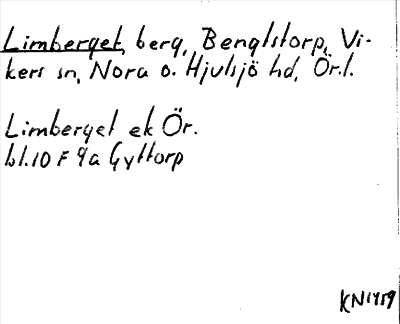 Limberget, berg, Bengtstorp, Vi-
kers sn, Nora o. Hjulsjö hd, Ör.l.
Limberget ek Ör.
bl.10 F 9a Gyttorp
KN1959